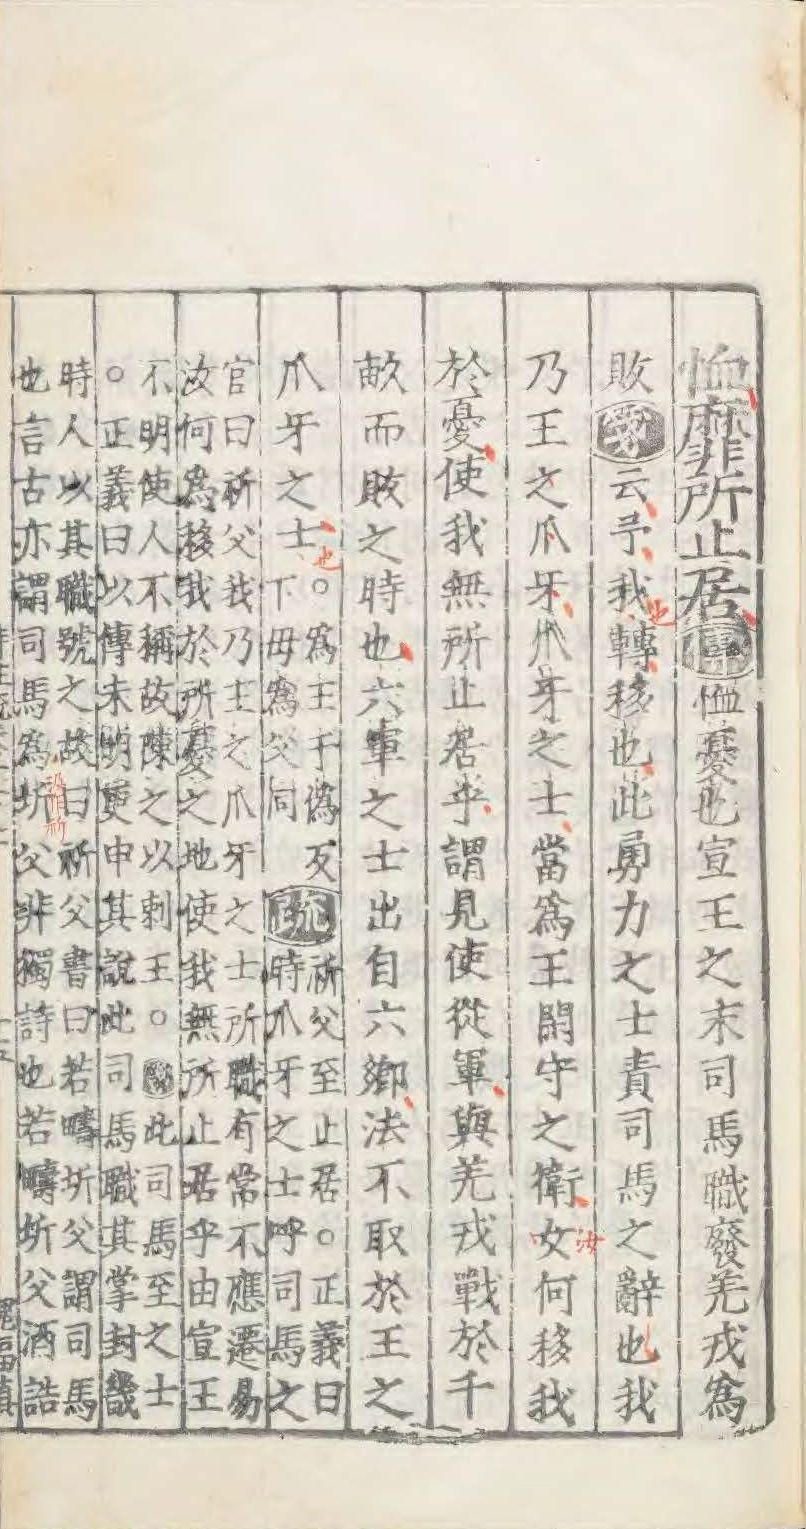 恤靡所止居傳恤憂也宣王之末司馬職廢羌戎爲
敗箋云予我轉移也此勇力之士責司馬之辭也我
乃王之爪牙爪牙之士當爲王閑守之衛女何移我
於憂使我無所止居乎謂見使從軍與羌戎戰於千
畝而敗之時也六軍之士出自六鄉法不取於王之
爪牙之士
○爲王于僞反
下毋爲父同
疏
祈父至止居○正義曰
時爪牙之士呼司馬之
官曰祈父我乃王之爪牙之士所職有常不應遷易
汝何爲移我於所憂之地使我無所止居乎由宣王
不明使人不稱故陳之以刺王○箋此司馬至之士
○正義曰以傳未明更申其說此司馬職其掌封畿
時人以其職號之故曰祈父書曰若疇圻父謂司馬
也言古亦謂司馬爲圻父非獨詩也若疇圻父酒誥
也
也
汝